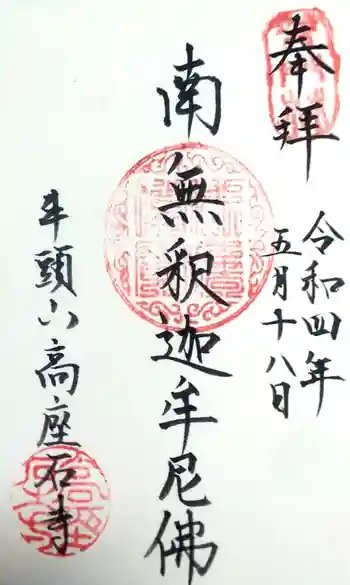 奉拝
令和四年
五月十八日
南無釈迦牟尼佛
牛頭山高座石寺